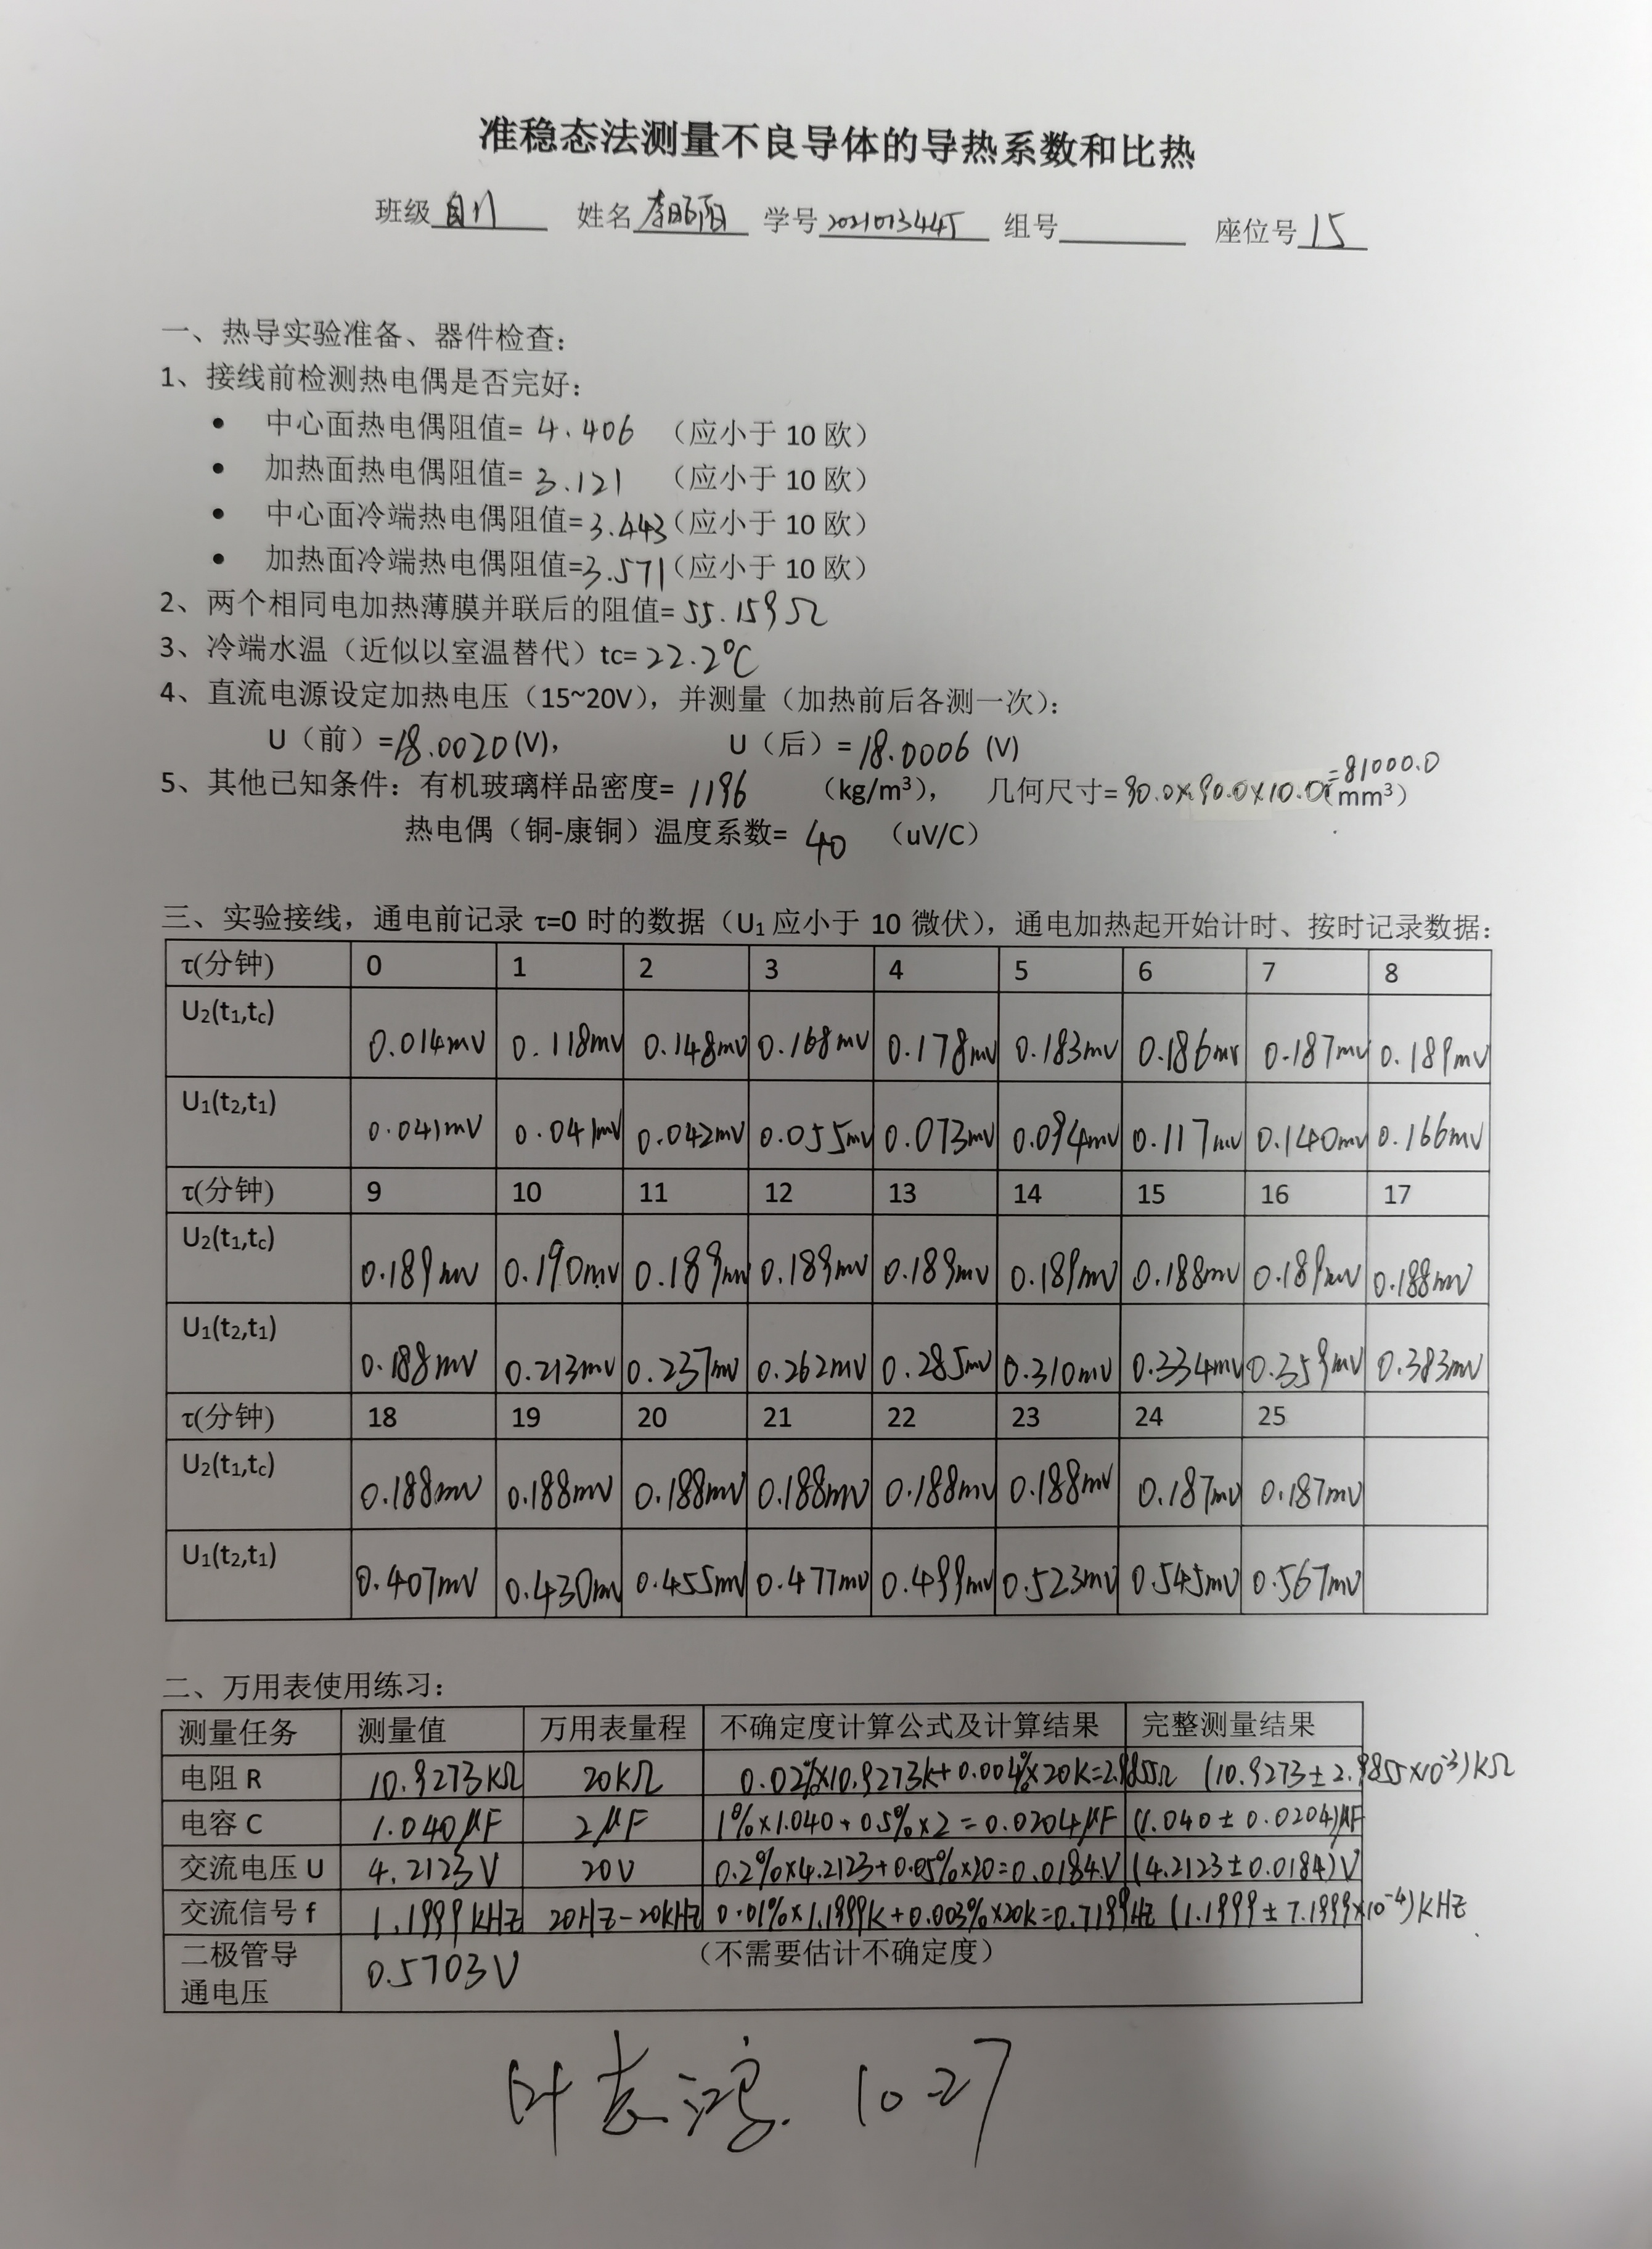 准稳态法测量不良导体的导热系数和比热
班级 自11 姓名 李昭阳 学号 2021013445 组号 座位号 15
一、热导实验准备、器件检查：
1、接线前检测热电偶是否完好：
• 中心面热电偶阻值= 4.406 （应小于 10 欧）
• 加热面热电偶阻值= 3.121 （应小于 10 欧）
• 中心面冷端热电偶阻值=3.443（应小于 10 欧）
• 加热面冷端热电偶阻值=3.571（应小于 10 欧）
2、两个相同电加热薄膜并联后的阻值= 55.159Ω
3、冷端水温（近似以室温替代）tc= 22.2℃
4、直流电源设定加热电压（15~20V），并测量（加热前后各测一次）：
U（前）=18.0020 (V)， U（后）= 18.0006 (V)
5、其他已知条件：有机玻璃样品密度= 1196 （kg/m³）， 几何尺寸= 90.0×90.0×10.0=81000.0（mm³）
热电偶（铜-康铜）温度系数= 40 （uV/C）
三、实验接线，通电前记录 τ=0 时的数据（U₁ 应小于 10 微伏），通电加热起开始计时、按时记录数据：
τ(分钟) 0 1 2 3 4 5 6 7 8
U₂(t₁,tc) 0.014mV 0.118mV 0.148mV 0.168mV 0.178mV 0.183mV 0.186mV 0.187mV 0.189mV
U₁(t₂,t₁) 0.041mV 0.041mV 0.042mV 0.055mV 0.073mV 0.094mV 0.117mV 0.140mV 0.166mV
τ(分钟) 9 10 11 12 13 14 15 16 17
U₂(t₁,tc) 0.189mV 0.190mV 0.189mV 0.189mV 0.189mV 0.189mV 0.188mV 0.189mV 0.188mV
U₁(t₂,t₁) 0.188mV 0.213mV 0.237mV 0.262mV 0.285mV 0.310mV 0.334mV 0.359mV 0.383mV
τ(分钟) 18 19 20 21 22 23 24 25
U₂(t₁,tc) 0.188mV 0.188mV 0.188mV 0.188mV 0.188mV 0.188mV 0.187mV 0.187mV
U₁(t₂,t₁) 0.407mV 0.430mV 0.455mV 0.477mV 0.499mV 0.523mV 0.545mV 0.567mV
二、万用表使用练习：
测量任务 测量值 万用表量程 不确定度计算公式及计算结果 完整测量结果
电阻 R 10.9273KΩ 20KΩ 0.02%×10.9273k+0.004%×20k=2.9855Ω (10.9273±2.9855×10⁻³)KΩ
电容 C 1.040μF 2μF 1%×1.040+0.5%×2=0.0204μF (1.040±0.0204)μF
交流电压 U 4.2123V 20V 0.2%×4.2123+0.05%×20=0.0184V (4.2123±0.0184)V
交流信号 f 1.1999KHz 20Hz-20KHz 0.01%×1.1999K+0.003%×20k=0.7199Hz (1.1999±7.1999×10⁻⁴)KHz
二极管导通电压 0.5703V （不需要估计不确定度）
叶志鸿 10.27